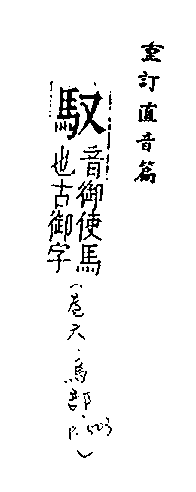 重訂直音篇
馭
音御使馬
也古御字
(卷六.馬部.P.503)